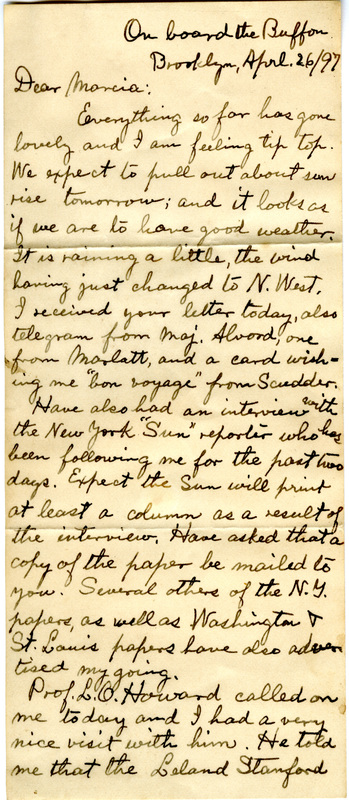 On board the Buffon.
Brooklyn, April. 26/97
Dear Marcia:
Everything so far has gone
lovely and I am feeling tip top.
We expect to pull out about sun
rise tomorrow; and it looks as
if we are to have good weather.
It is raining a little, the wind
having just changed to N. West.
I received your letter today, also
telegram from Maj. Alvord, one
from Marlatt, and a card wish-
ing me "bon voyage" from Scudder.
Have also had an interview with
the New York "Sun" reporter who has
been following me for the past two
days. Expect the Sun will print
at least a column as a result of
the interview. Have asked that a
copy of the paper be mailed to
you. Several others of the N.Y.
papers, as well as Washington &
St. Louis papers have also adver
tised my going.
Prof. L. O. Howard called on
me today and I had a very
nice visit with him. He told
me that the Leland Stanford